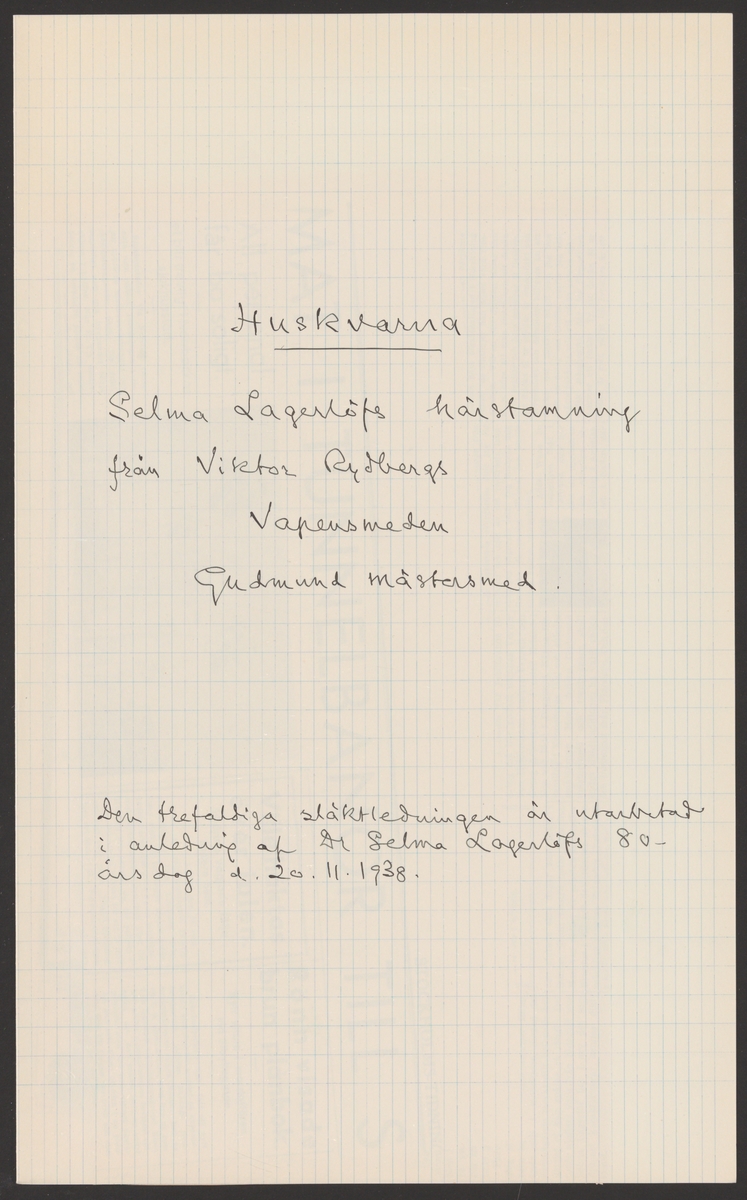 Huskvarna
Selma Lagerlöfs härstamning
från Viktor Rydbergs
Vapensmeden
Gudmund mästersmed.
Den trefaldiga släktledningen är utarbetad
i anledning af Dr Selma Lagerlöfs 80-
årsdag d. 20.11.1938.